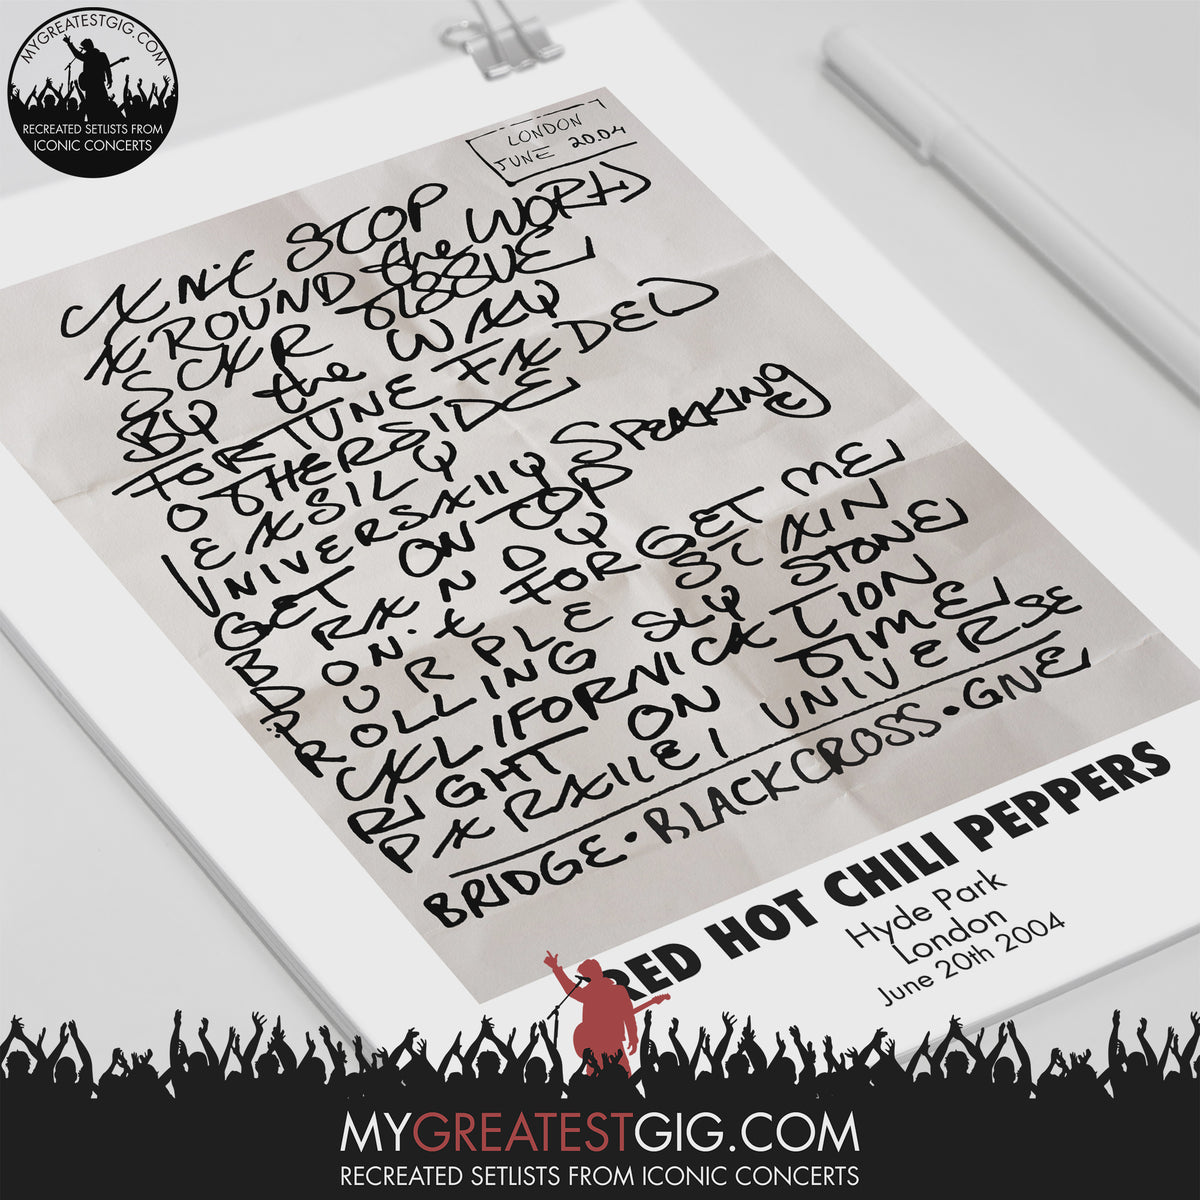 MYGREATESTGIG.COM
RECREATED SETLISTS FROM
ICONIC CONCERTS
LONDON
JUNE 20.04
CAN·T STOP
AROUND the WORLD
SCAR TISSUE
BY the WAY
FORTUNE FADED
OTHERSIDE
EASILY
UNIVERSALLY SPEAKING
GET ON TOP
BRANDY
DON·T FORGET ME
PURPLE STAIN
ROLLING SLY STONE
CALIFORNICATION
RIGHT ON TIME
PARALLEL UNIVERSE
BRIDGE • BLACKCROSS • GNE
RED HOT CHILI PEPPERS
Hyde Park
London
June 20th 2004
MYGREATESTGIG.COM
RECREATED SETLISTS FROM ICONIC CONCERTS